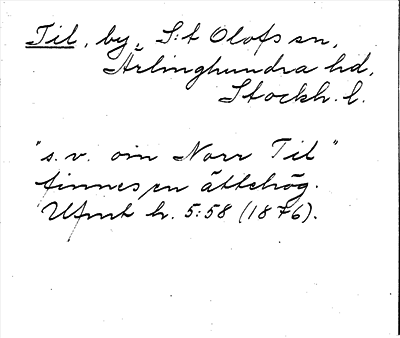 Til, by, S:t Olofs sn,
Ärlinghundra hd,
Stockh. l.
"s.v. om Norr Til"
finnes en ättehög.
Ufmt h. 5:58 (1876).